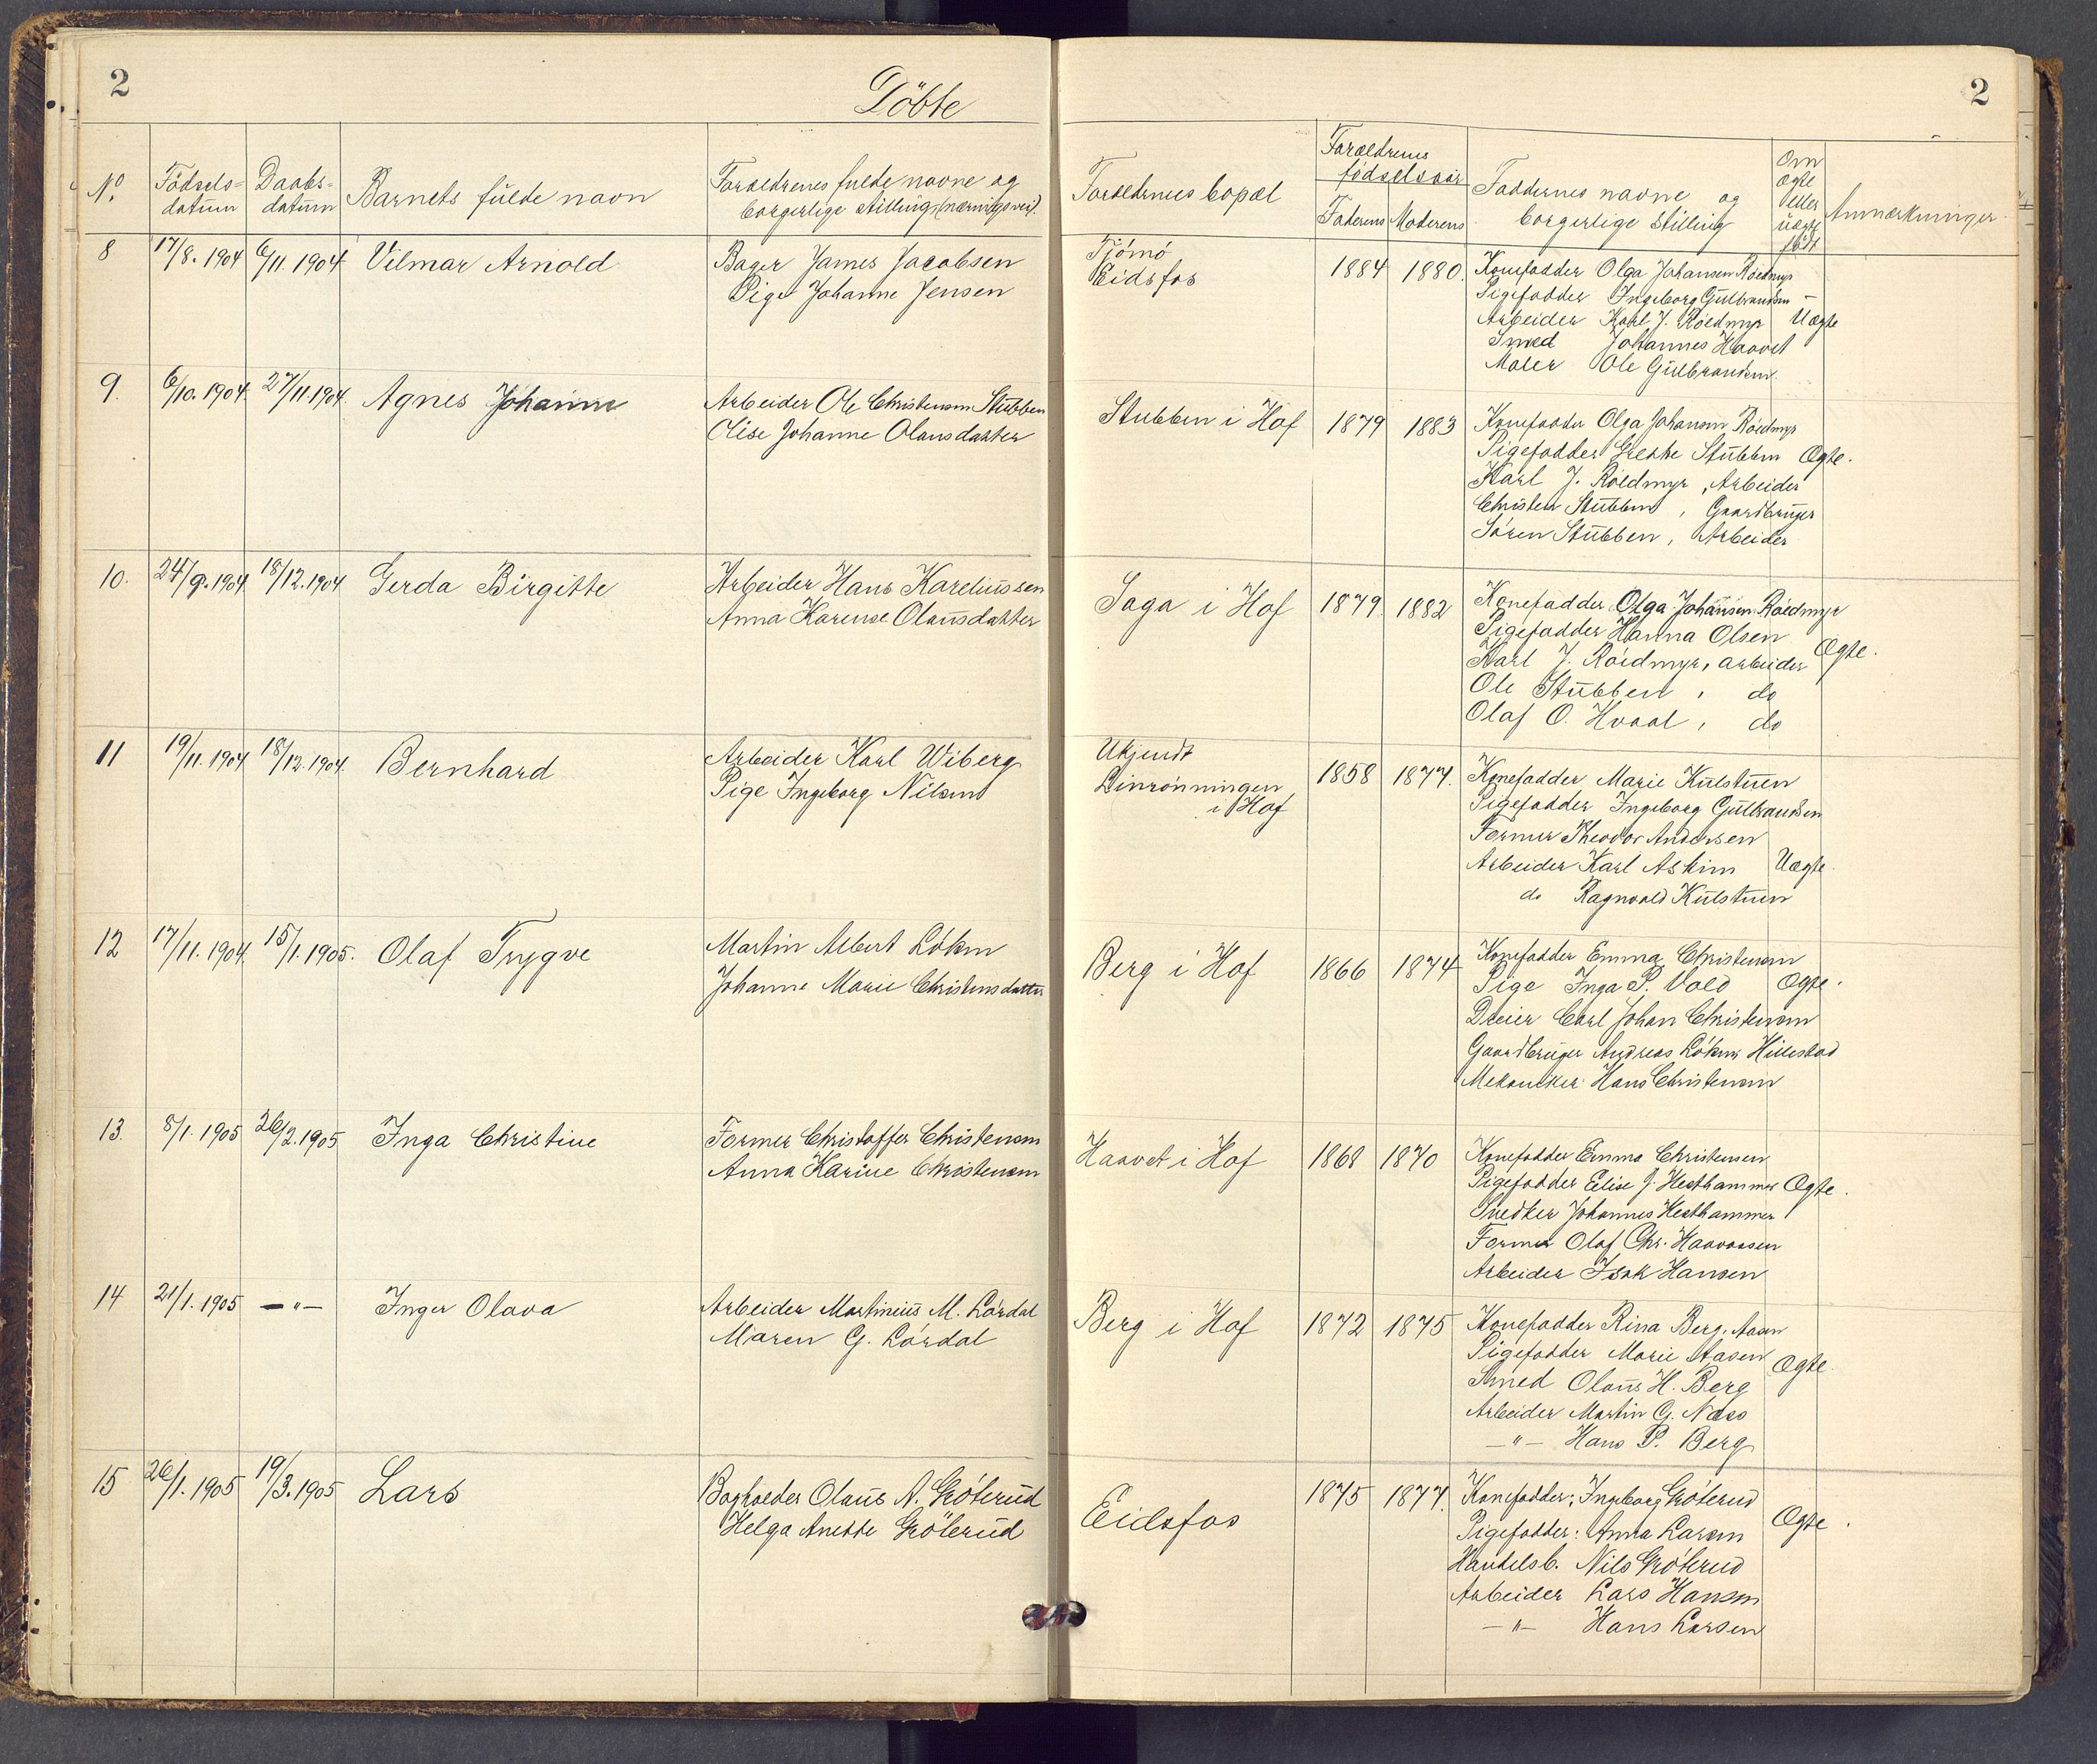 2
Döbte
2
No
Födsels-
datum
Daabs-
datum
Barnets fulde navn
Foræeldrenes fulde navne og
borgerlige stilling (næringsvei)
Forældrenes bopæl
Forældrenes
fødselsaar
Faderens
Moderens
Faddernes navne og
borgerlige stilling
Om
ægte
eller
uægte
født
Anmærkninger
8 17/8. 1904 6/11. 1904 Vilmar Arnold
Bager James Jacobsen
Pige Johanne Jensen
Tjömö
Eidsfos
1884 1880.
Konefadder Olga Johansen Röedmyr
Pigefadder Ingeborg Gulbrandsen
Arbeider Karl J. Röedmyr
Smed Johannes Haavet
Maler Ole Gulbrandsen
Uægte
9. 6/10. 1904. 27/11. 1904 Agnes Johanne
Arbeider Ole Christensen Stubben
Elise Johanne Olausdatter
Stubben i Hof
1879 1883
Konefadder Olga Johansen Röidmyr
Pigefadder Grethe Stubben
Karl J. Röedmyr, Arbeider
Christen Stubben, Gaardbruger
Sören Stubben, Arbeider
Ægte.
10. 24/9. 1904 18/12. 1904 Gerda Birgitte
Arbeider Hans Kareliussen
Anna Karense Olausdatter
Saga i Hof
1879 1882
Konefadder Olga Johansen Röedmyr
Pigefadder Hanna Olsen
Karl J. Röidmyr, arbeider
Ole Stubben, do
Olaf O. Hvaal, do
Ægte.
11 19/11. 1904 18/12. 1904. Bernhard
Arbeider Karl Wiberg
Pige Ingeborg Nilsen
Ukjendt
Linrönningen
i Hof
1858 1877.
Konefadder Marie Kulstuen
Pigefadder Ingeborg Gulbrandsen
Former Theodor Andersen
Arbeider Karl Askim
do Ragnvald Kulstuen
Uægte.
12 17/11. 1904. 15/1. 1905. Olaf Trygve
Martin Albert Löken
Johanne Marie Christensdatter
Berg i Hof
1866 1874
Konefadder Emma Christensen
Pige Inga P. Vold
Dreier Carl Johan Christensen
Gaardbruger Andreas Löken Hillestad
Mekaniker Hans Christensen
Ægte.
13. 8/1. 1905 26/2. 1905 Inga Christine
Former Christoffer Christensen
Anna Karine Christensen
Haavet i Hof
1868 1870
Konefadder Emma Christensen
Pigefadder Elise J. Hesthammer
Snedker Johannes Hesthammer
Former Olaf Chr. Haavaasen
Arbeider Isak Hansen
Ægte.
14 21/1. 1905 — " — Inger Olava
Arbeider Martinius M. Lördal
Maren G. Lördal
Berg i Hof
1872 1875
Konefadder Rina Berg. Aasen
Pigefadder Marie Aasen
Smed Olaus H. Berg
Arbeider Martin G. Næss
— " — Hans P. Berg
Ægte.
15 26/1. 1905 19/3. 1905 Lars
Bogholder Olaus A. Gröterud
Helga Anette Gröterud
Eidsfos
1875 1877.
Konefadder: Ingeborg Gröterud
Pigefadder: Anna Larsen
Handelsb. Nils Gröterud
Arbeider Lars Hansen
— " — Hans Larsen
Ægte.